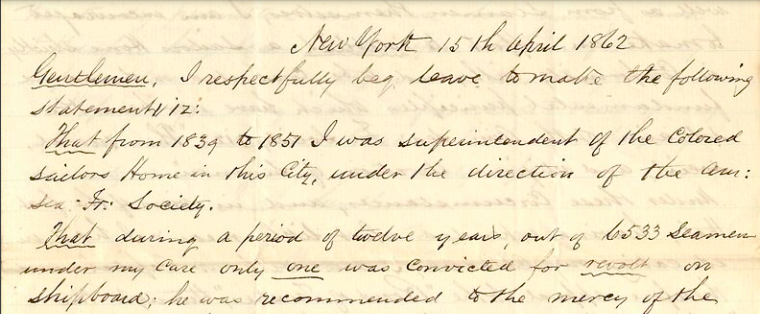 New York 15th April 1862
Gentlemen, I respectfully beg leave to make the following
statement viz:
That from 1839 to 1851 I was superintendent of the Colored
sailors Home in this City, under the direction of the am:
sea: Fr: Society.
That during a period of twelve years, out of 6533 Seamen
under my care only one was convicted for revolt on
shipboard; he was recommended to the mercy of the